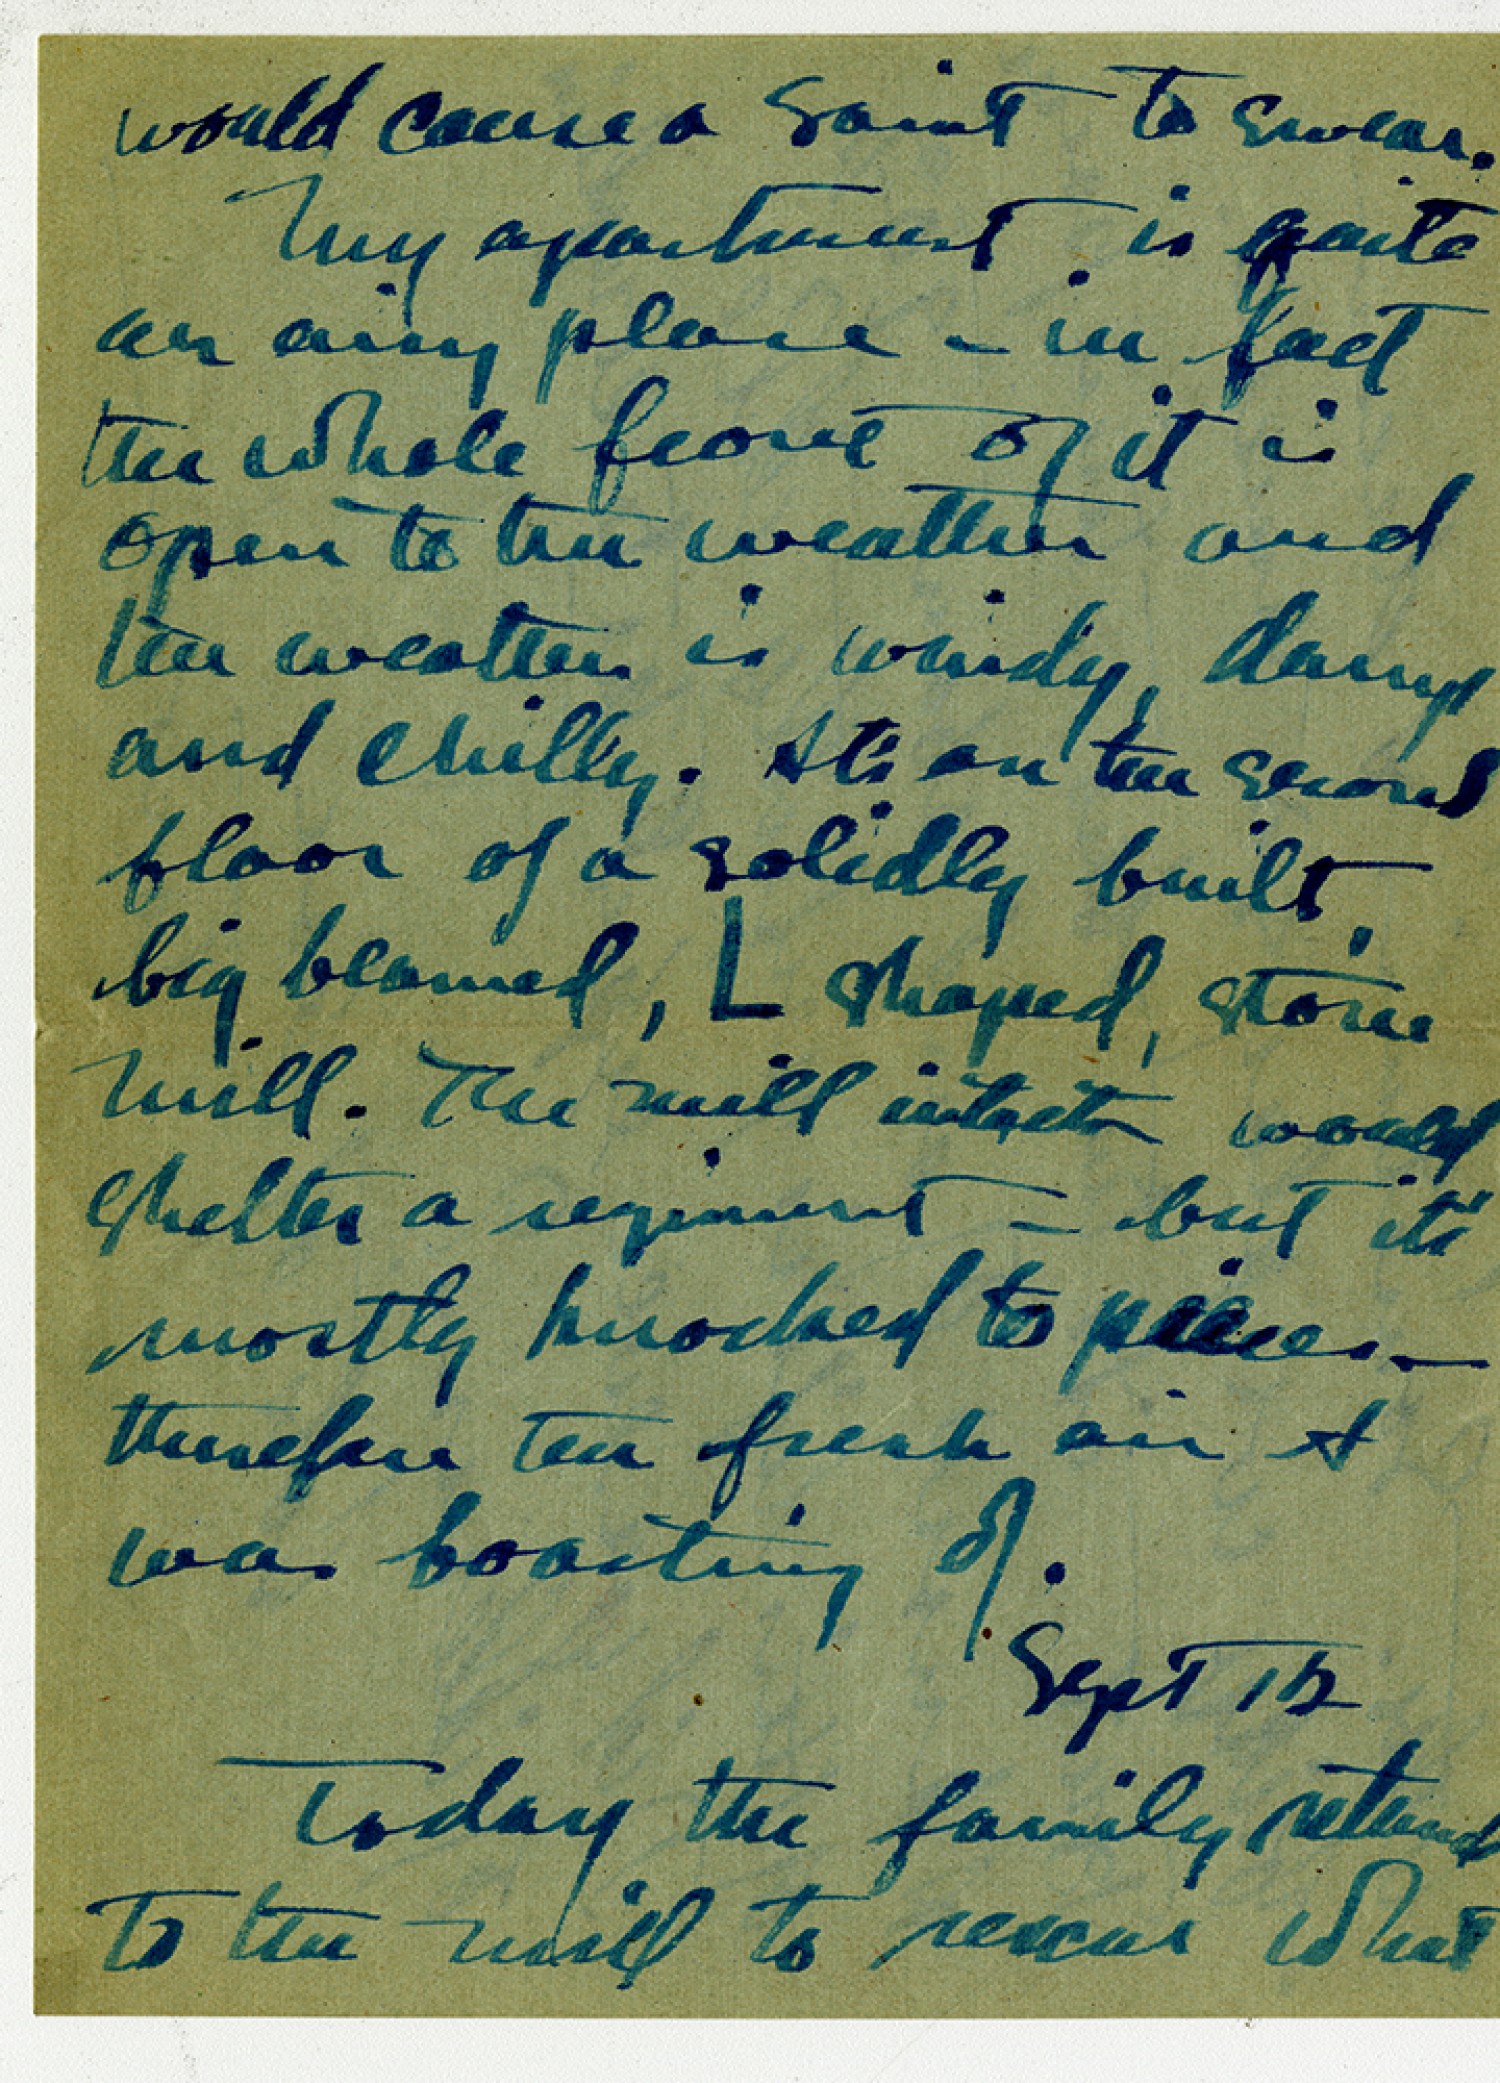 would cause a Saint to swear.
My apartment is quite
an airy place - in fact
the whole front of it is
open to the weather and
the weather is windy, damp
and chilly. It's on the second
floor of a solidly built,
big beamed, L shaped, stone
mill. The mill intact would
shelter a regiment - but it's
mostly knocked to pieces -
therefore the fresh air I
was boasting of.
Sept 12
Today the family returned
to the mill to rescue what